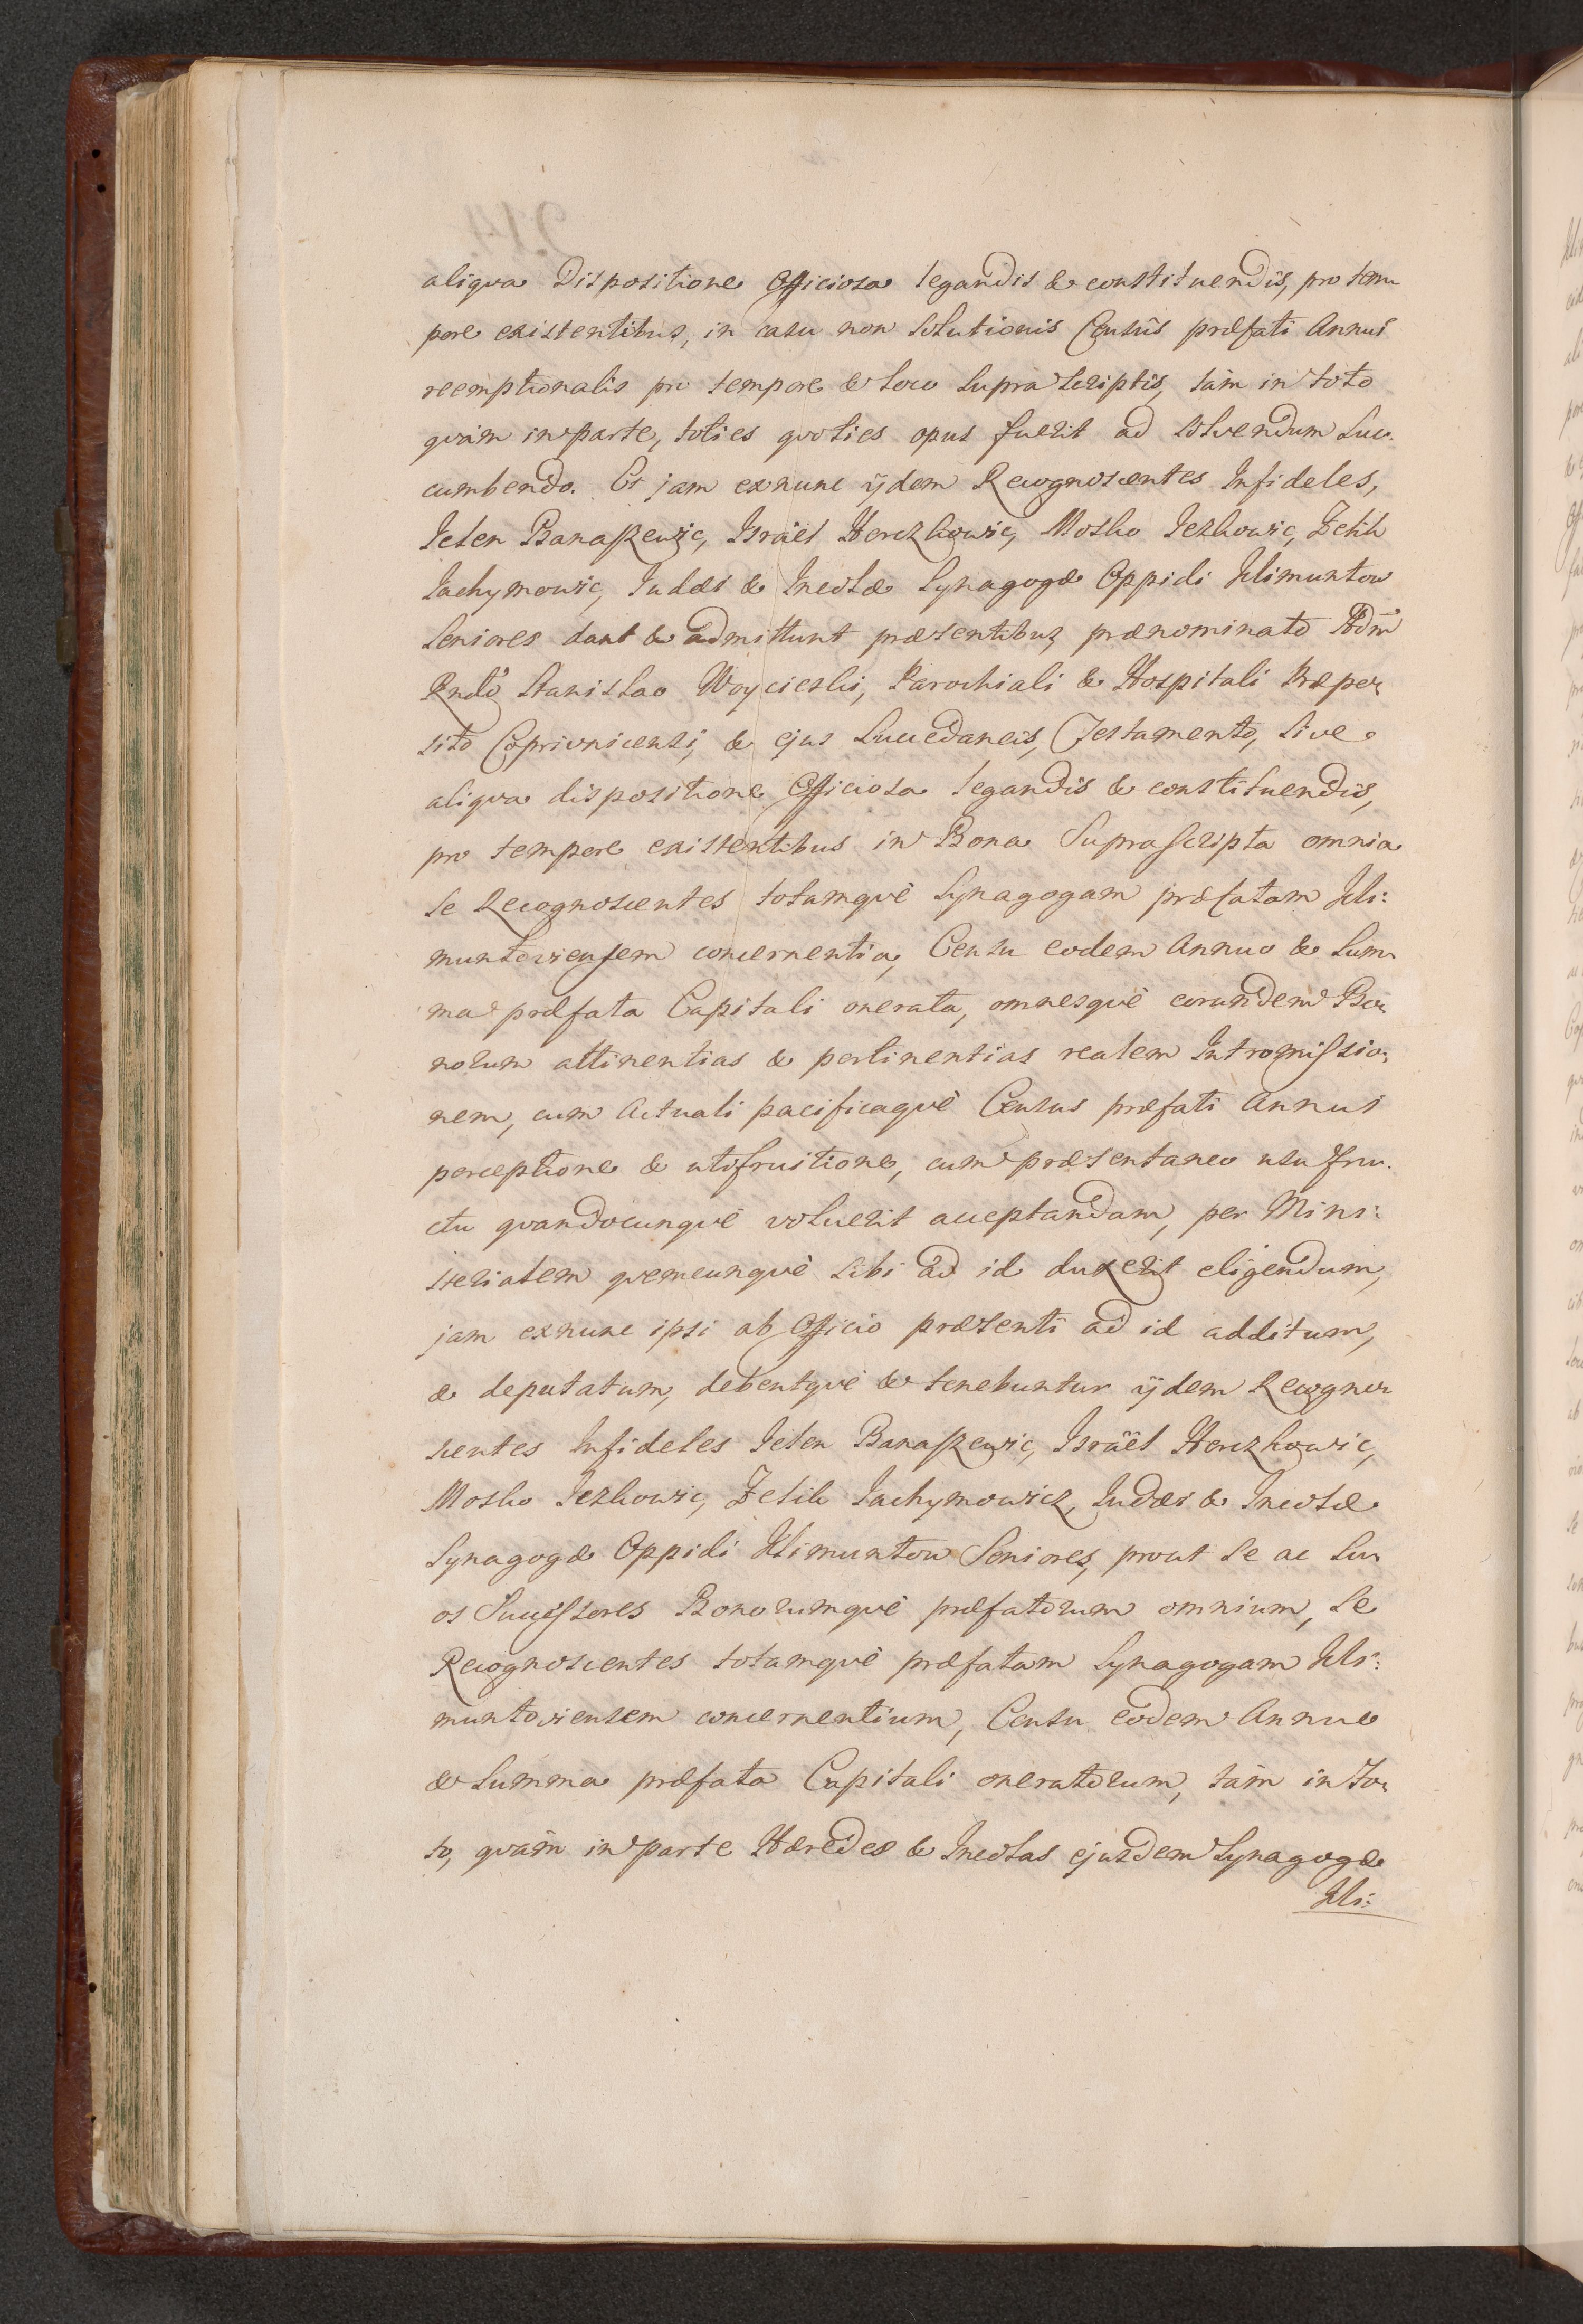 aliqva Dispositione Officiosa legandis & constituendis, pro tem
pore existentibus, in casu non Solutionis Censûs præfati Annui
reemptionalis pro tempore & loco supra scriptis, tàm in toto
qvàm in parte, toties qvoties opus fuerit ad solvendum Suc:
cumbendo. Et jam exnunc ijdem Recognoscentes Infideles,
Ieten Banaszewic, Israël Herczkowic, Mosko Iezkowic, Zelik
Iachymowic, Iudæi & Incolæ Synagogæ Oppidi Klimuntow
Seniores dant & admittunt præsentibus prænominato Adm
Rndo Stanislao Woycieski, Parochiali & Hospitali Præpo
sito Coprivnicensi, & ejus Succedaneis, Testamento, sive
aliqva dispositione Officiosa legandis & constituendis,
pro tempore existentibus in Bona Suprascripta omnia
se Recognoscentes totamqvè Synagogam præfatam Kli:
muntoviensem concernentia, Censu eodem Annuo & Sum
ma præfata Capitali onerata, omnesqvè eorundem Bo
norum attinentias & pertinentias realem Intromissio:
nem, cum Actuali pacificaqvè Census præfati Annui
perceptione & utifruitione, cum præsentaneo usu fru:
ctu qvandocunqvè voluerit acceptandam, per Mini:
sterialem qvemcunqvè sibi ad id duxerit eligendum,
jam exnunc ipsi ab Officio præsenti ad id additum,
& deputatum, debentqvè & tenebuntur ijdem Recogno
scentes Infideles Ieten Banaszewic, Israël Herczkowic,
Mosko Iezkowic, Zelik Iachymowicz, Iudæi & Incolæ
Synagogæ Oppidi Klimuntow Seniores, prout se ac Su
os Successores Bonorumqvè præfatorum omnium, se
Recognoscentes totamqvè præfatam Synagogam Kli:
muntoviensem concernentium, Censu eodem Annuo
& Summa præfata Capitali oneratorum, tàm in To
to, qvàm in parte Hæredes & Incolas ejusdem Synagogæ
Kli: